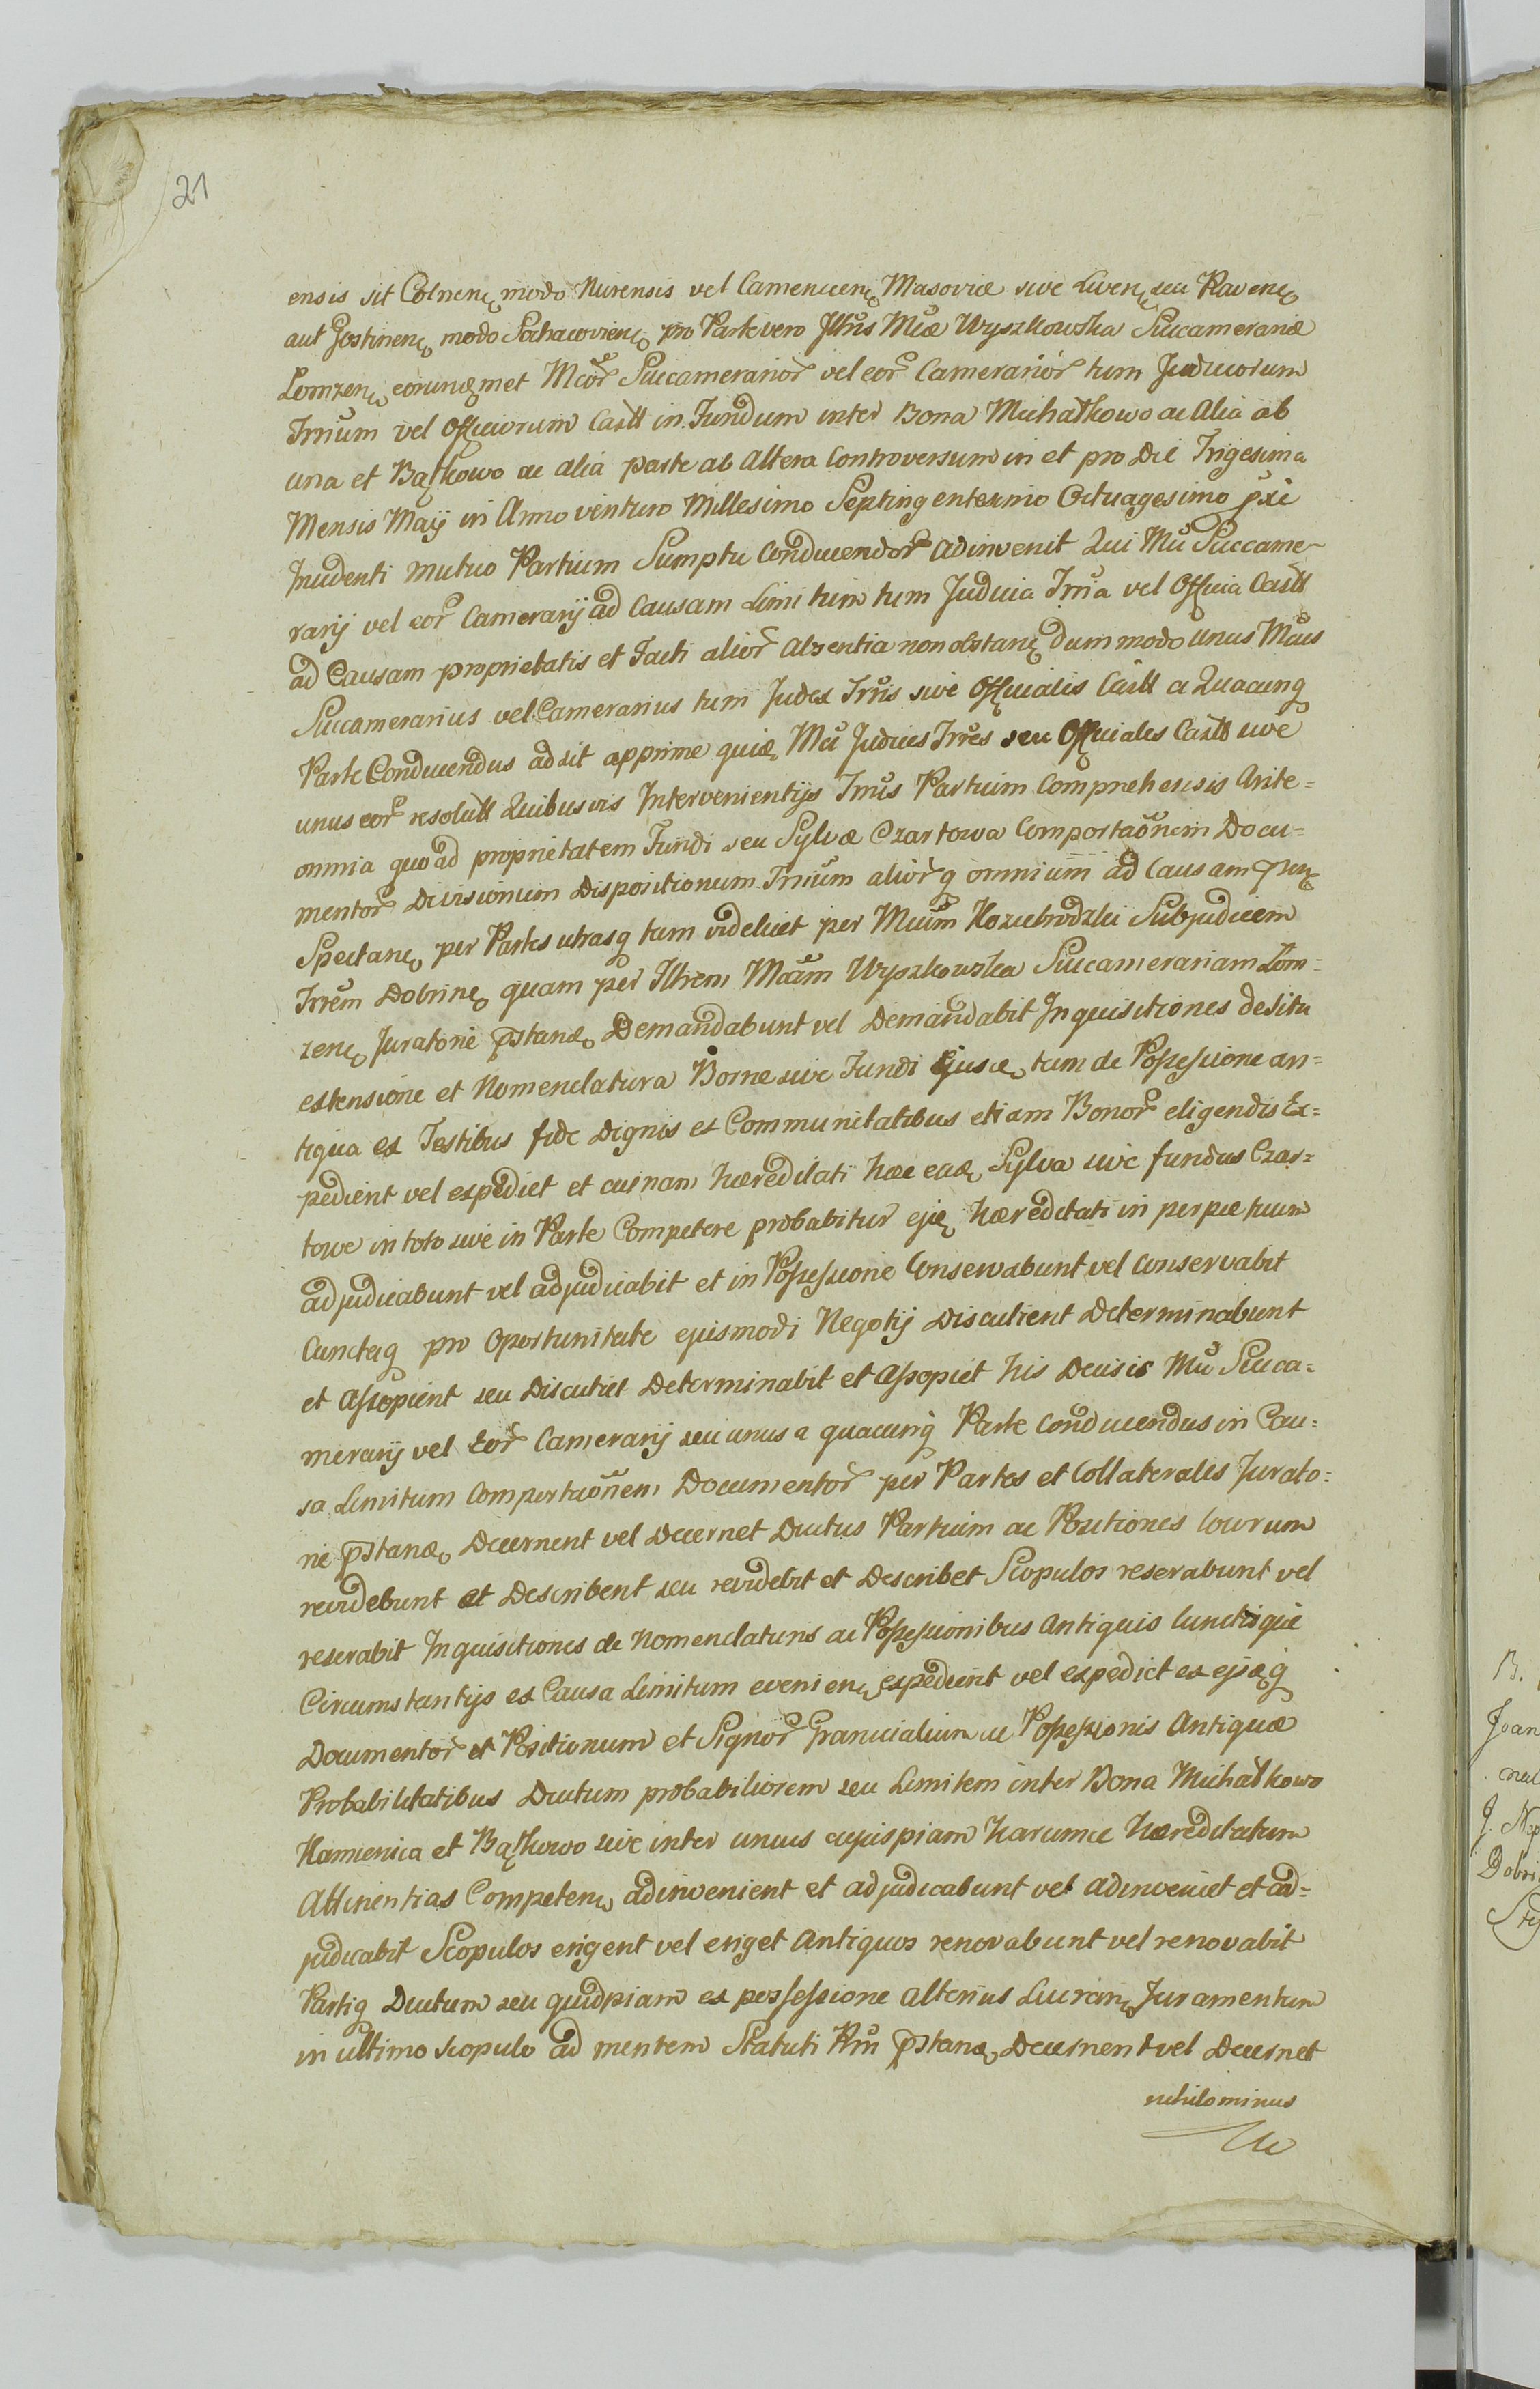 21
ensis sit Colnenę modo Nurensis vel Camenecenę Masoviæ sive Livenę seu Ravenę
aut Gostinenę modo Sochacovienę pro Parte vero Jllris Mcæ Wyszkowska Succamerariæ
Lomzenę eorundęmet Mcor Succamerarior vel eor Camerarior tum Judiciorum
Trrium vel Officiorum Castt in Fundum inter Bona Michałkowo ac Alia ab
una et Bątkowo ac alia parte ab Altera Controversum in et pro Die Trigesima
Mensis Maij in Anno venturo Millesimo Septingentesimo Octuagesimo pxe
Jncidenti mutuo Partium Sumptu Conducendor adinvenit Qui Mci Succame-
rarij vel eor Camerarij ad Causam Limitum tum Judicia Trria vel Officia Castt
ad Causam proprietatis et Facti alior Absentia non obstanę dummodo Unus Mcus
Succamerarius vel Camerarius tum Judex Trris sive Officialis Castt a Quacunq
Parte Conducendus adsit apprime quidę Mci Judices Trres seu Officiales Castt sive
unus eor resolutt Quibusvis Intervenientijs Trris Partium Comprehensis Ante=
omnia quo ad proprietatem Fundi seu Sylvæ Czartowa Comportaonem Docu=
mentor Divisionum Dispositionum Trrium aliorq omnium ad Causam
Spectanę per Partes utrasq tum videlicet per Mcum Kozubrodzki Subjudicem
Trrem Dobrinę quam per Jllrem Mcam Wyszkowska Succamerariam Lom=
zenę Juratorie pstandę Demandabunt vel Demandabit Jnquisitiones de situ
extensione et Nomenclatura Borne sive Fundi Ejusdę tum de Possessione an=
tiqua ex Testibus fide dignis ex Communitatibus etiam Bonor eligendis Ex=
pedient vel expediet et cuinam hæreditati hæc eadę Sylva sive fundus Czar=
towe in toto sive in Parte Competere probabitur ejdę hæreditati in perpetuum
adjudicabunt vel adjudicabit et in Possessione Conservabunt vel Conservabit
Cunctaq pro Oportunitate ejusmodi Negotij Discutient Determinabunt
et Assopient seu Discutiet Determinabit et Assopiet his Decisis Mci Succa=
merarij vel Eor Camerarij seu unus a quacunq Parte Conducendus in Cau=
sa Limitum Comportaonem Documentor per Partes et Collaterales Jurato=
rie pstandę Decernent vel Decernet Ductus Partium ac Positiones locorum
revidebunt et Describent seu revidebit et Describet Scopulos reserabunt vel
reserabit Jnquisitiones de Nomenclaturis ac Possessionibus Antiquis Cunctisque
Circumstantijs ex Causa Limitum evenienę expedient vel expediet ex ejsdęq
Documentor et Positionum et Signor Granicialium ac Possessionis Antiquæ
Probabilitatibus Ductum probabiliorem seu Limitem inter Bona Michałkowo
Kamienica et Bątkowo sive inter unius cujuspiam harumce hæreditatum
Attinentias Competenę adinvenient et adjudicabunt vel adinveniet et ad=
judicabit Scopulos erigent vel eriget Antiquos renovabunt vel renovabit
Partiq Ductum seu quidpiam ex possessione alterius Lucranę Juramentum
in ultimo scopulo ad mentem Statuti Rni pstandę Decernent vel Decernet
nihilominus
B.
Joan
J. Nep
Dobri